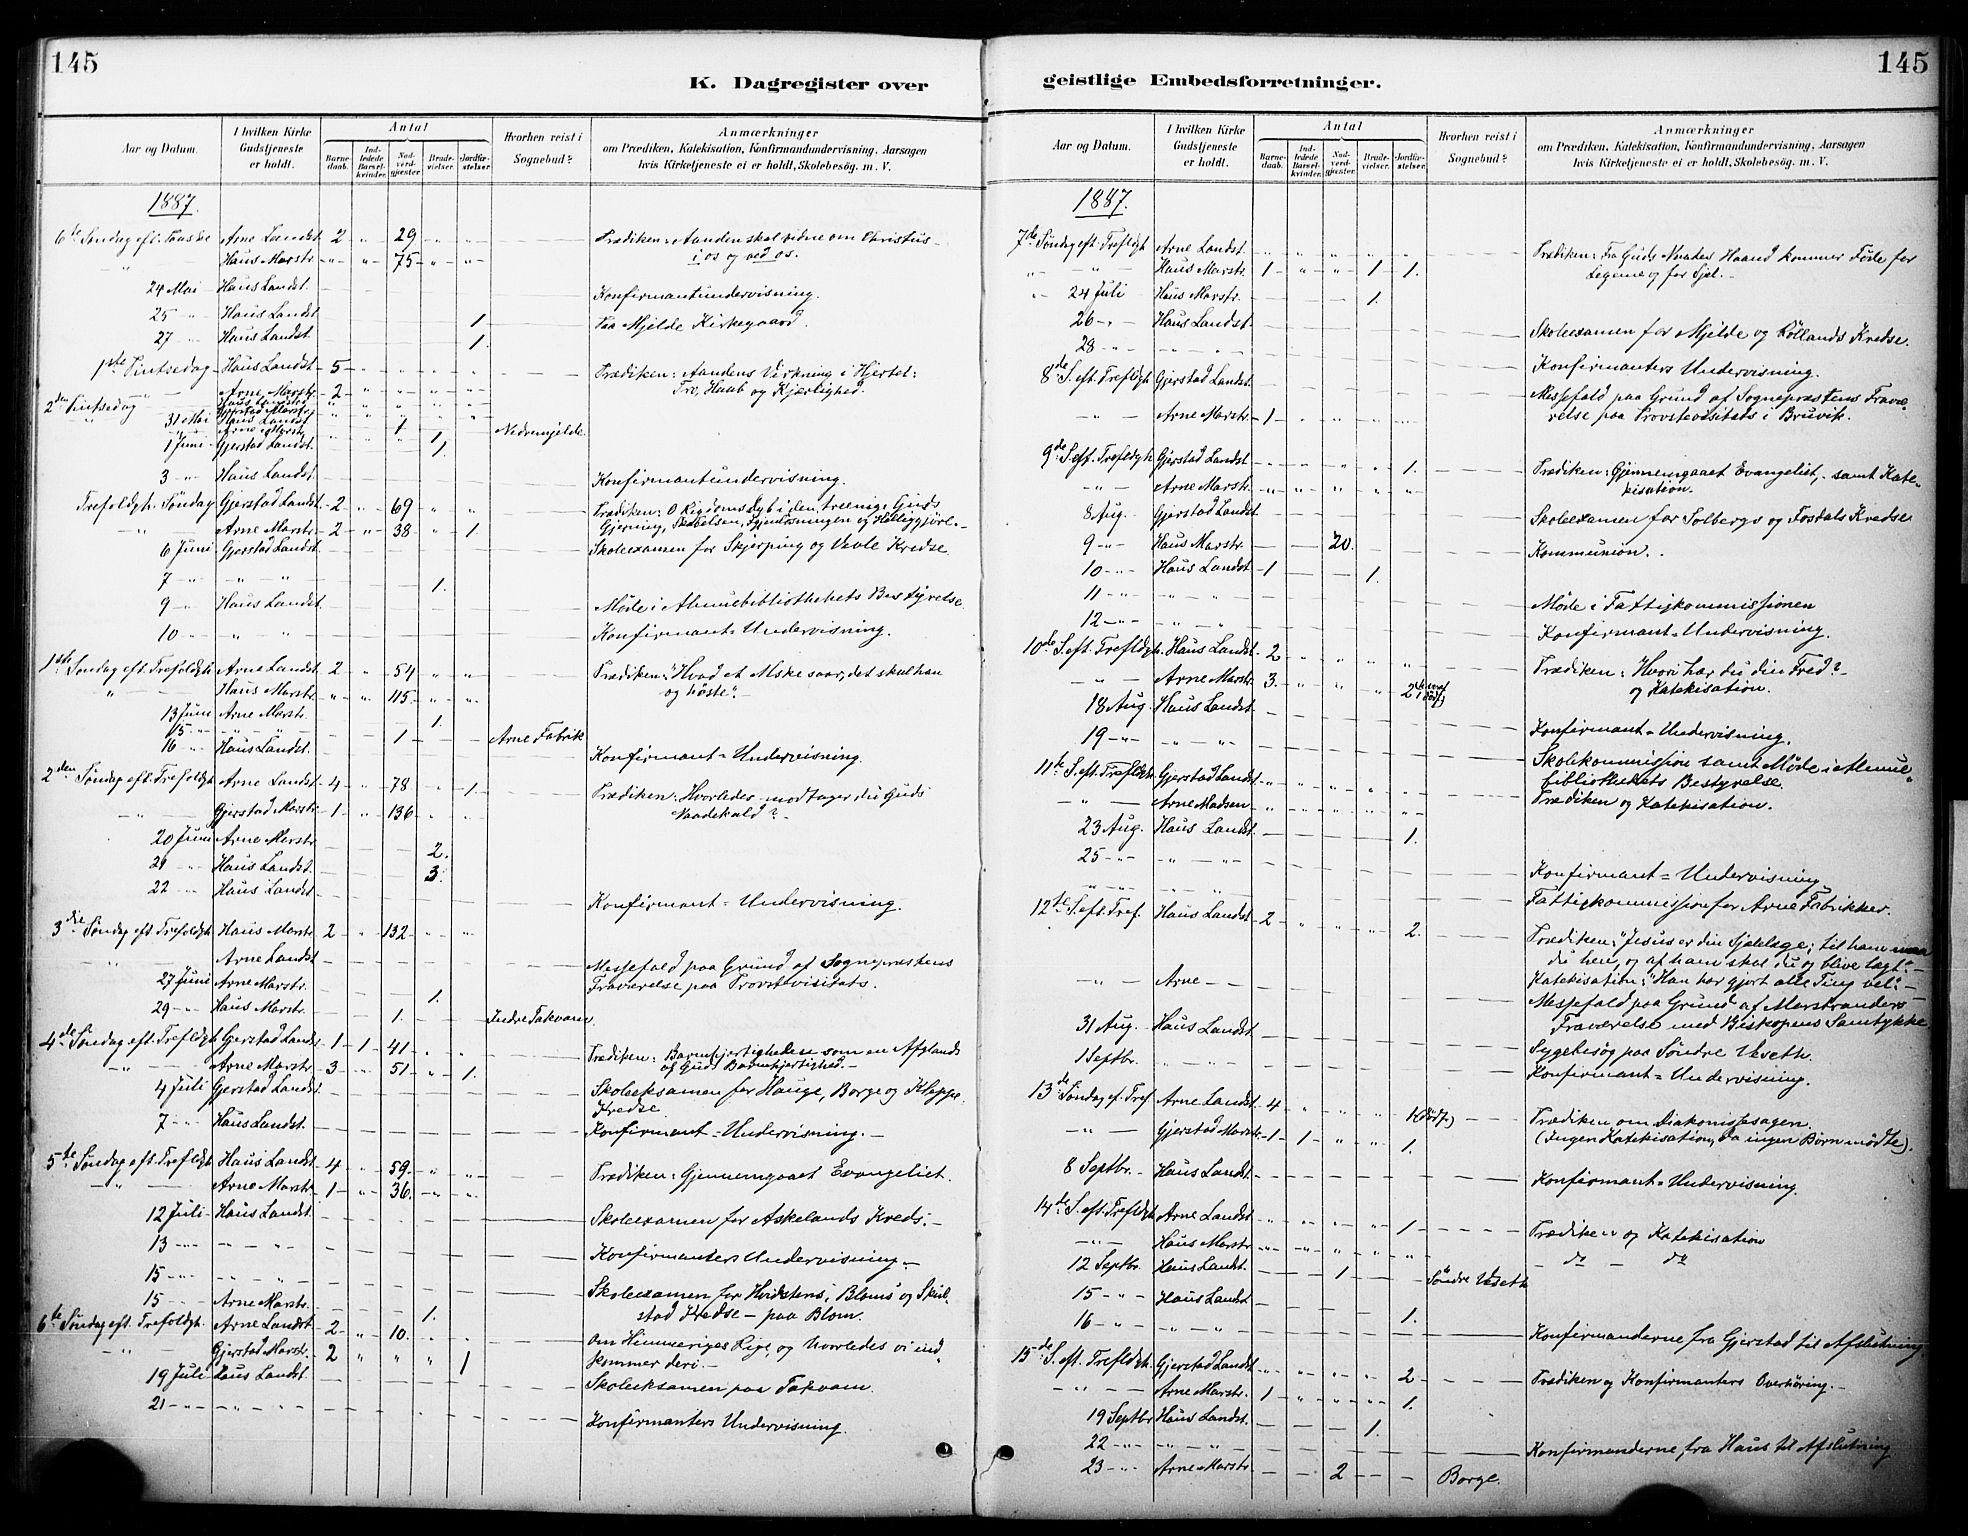 145
K. Dagregister over
Aar og Datum.
I hvilken Kirke Gudstjeneste er holdt.
Antal
Barnedaab.
Indledede Barselkvinder.
Nadverdgjester.
Brudevielser.
Jordfæstelser.
Hvorhen reist i Sognebud?
Anmærkninger
om Prædiken, Katekisation, Konfirmandundervisning, Aarsagen
hvis Kirketjeneste ei er holdt, Skolebesøg. m. V.
1887.
6te Søndag eft. Paaske Arne Landst. 2 " 29 " " Prædiken: Aanden skal vidne om Christus
" Haus Marstr. " " 75 " " i os og ved os.
24 Mai Haus Landst. Konfirmantundervisning.
25 " Haus Landst. 1. Paa Mjelde Kirkegaard.
27 " Haus Landst. 1.
1ste Pintsedag Haus Landst. 5 " " " " Prædiken: Aandens Virkning i Hjertet:
" Arne Marstr. 2 " " " " Tro, Haab og Kjerlighed.
2den Pintsedag Haus Landst.
" Gjerstad Marstr.
31 Mai Haus Landst.
" Arne Marstr. 1 Nedremjelde
1 Juni Gjerstad Landst. 1.
3 " Haus Landst. Konfirmantundervisning.
Trefoldgh. Søndag Gjerstad Landst. 2 " 69 " " Prædiken: O Rigdoms Dyb i den treenige Guds
" Arne Marstr. 2 " 38 " 1. Gjerning, Skabelsen, Gjenløsningen og Helliggjörl.
6 Juni Gjerstad Landst. Skoleexamen for Skjerping og Vevle Kredse
7 " " " 1.
9 " Haus Landst. Møde i Almuebibliothekets Bestyrelse.
10 " " " Konfirmant=Undervisning.
1ste Søndag eft. Trefoldgh. Arne Landst. 2 " 54 " " Prædiken: "Hvad et Mske saar, det skal han
" Haus Marstr. " " 115 " " og høste".
13 Juni Arne Marstr. 1.
15 " " " 1 Arne Fabrik
16 " Haus Landst. Konfirmant=Undervisning.
2den Søndag eft. Trefoldgh. Arne Landst. 4 " 78 " 1. Prædiken: Hvorledes modtager du Guds
" Gjerstad Marstr. 1 " 136 " " Naadekald?
20 Juni Arne Marstr. 2.
21 " Haus Landst. 3.
22 " Haus Landst. Konfirmant=Undervisning.
3die Søndag eft. Trefoldgh. Haus Marstr. 2 " 132 " "
" Arne Landst. Messefald paa Grund af Sognepræstens
27 Juni Arne Marstr. 1. Fraværelse paa Provstevisitats.
29 " Haus Marstr. 1. Indre Takvam
4de Søndag eft. Trefldgh. Gjerstad Landst. 1 1 41 " " Prædiken: Barmhjertighedens som en Afglands
" Arne Marstr. 3 " 51 " 1. af Guds Barmhjertighed.
4 Juli Gjerstad Landst. Skoleeksamen for Hauge, Borge og Kleppe
Kredse.
7 " Haus Landst. Konfirmant=Undervisning.
5te Søndag eft. Trefldgh. Haus Landst. 4 " 59 " " Prædiken: Gjennemgaaet Evangeliet.
" Arne Marstr. 1 " 36 " "
12 Juli Haus Landst. Skoleexamen for Askelands Kreds.
13 " " " Konfirmanters Undervisning.
15 " " " Skoleexamen for Hvidstens, Bloms og Skul-
15 " Arne Marstr. 1. stad Kredse paa Blom.
6te Søndag eft. Trefoldgh. Arne Landst. 2 " 10 " " Om Himmeriges Rige, og hvorledes vi ind-
" Gjerstad Marstr. 2 " " " 1 kommer deri.
19 Juli Haus Landst. Skoleeksamen paa Takvam.
21 " " " Konfirmanters Undervisning.
145
geistlige Embedsforretninger.
Aar og Datum.
I hvilken Kirke Gudstjeneste er holdt.
Antal
Barnedaab.
Indledede Barselkvinder.
Nadverdgjester.
Brudevielser.
Jordfæstelser.
Hvorhen reist i Sognebud?
Anmærkninger
om Prædiken, Katekisation, Konfirmandundervisning, Aarsagen
hvis Kirketjeneste ei er holdt, Skolebesøg. m. V.
1887.
7de Søndag eft. Trefldgh. Arne Landst. " " " " " Prædiken: Fra Guds Haand kommer Føde for
" Haus Marstr. 1 " " 1 1. Legeme og for Sjel.
" 24 Juli Haus Marstr. 1.
26 " Haus Landst. Skoleexamen for Mjelde og Röllands Kredse.
28 " " " Konfirmanters Undervisning.
8de S. eft. Trefldgh. Gjerstad Landst. Messefald paa Grund af Sognepræstens Fravæ-
" Arne Marstr. 1 " " " " relse paa Provstevisitats i Bruvik.
9de S. eft. Trefldgh. Gjerstad Landst. " " " " 1. Prædiken: Gjennemgaaet Evangeliet, samt Kate-
" Arne Marstr. " " " " " kisation.
8 Aug. Gjerstad Landst. Skoleexamen for Solbergs og Fosdals Kredse
9 " Haus Marstr. 20. Kommunion.
10 " Haus Landst. 1 1.
11 " " " Møde i Fattigkommissionen
12 " " " Konfirmant=Undervisning.
10de S. eft. Trefldgh. Haus Landst. 2 " " " " Prædiken: Hvori har du din Fred?
" Arne Marstr. 3. " " " 2 og Katekisation.
18 Aug. Haus Landst. Konfirmant=Undervisning.
19 " " " Skolekommission samt Møde i Almue-
bibliothekets Bestyrelse.
11te S. eft. Trefldgh. Gjerstad Landst. " " " " " Prædiken og Katekisation.
" Arne Madsen " " " " "
23 Aug. Haus Landst. 1.
25 " " " Konfirmant=Undervisning
" " " " Fattigkommission for Arne Fabrikker.
12te S. eft. Tref. Haus Landst. 2 " " " 2. Prædiken: "Jesus er din Sjælelæge; til ham maa
du hen, og af ham skal du og blive lægt".
Katekisation: "Han har gjort alle Ting vel".
" Arne Messefald paa Grund af Marstranders
Fraværelse med Biskopens Samtykke
31 Aug. Haus Landst. Sygebesøg paa Søndre Veseth.
1 Septbr. " " Konfirmant=Undervisning.
13de Søndag ef. Tref. Arne Landst. 4 " " " 1 (dödf.) Prædiken om Diakonissesagen.
" Gjerstad Marstr. 1 1 " " 1. (Ingen Katekisation, da ingen Børn mødte).
8 Septbr. Haus Landst. Konfirmant=Undervisning.
14de S. eft. Trefldgh. Arne Landst. " " " " 1 Prædiken og Katekisation
" Haus Marstr. " " " " " do do
12 Septbr. Haus Landst. 1 Söndre Veseth
15 " Haus Landst. 1.
16 " " " Konfirmanderne fra Gjerstad til Afslutning
15de S. eft. Trefldgh. Gjerstad Landst. " " " " 2 Prædiken og Konfirmanters Overhöring.
" Arne Marstr. 1 " " " 1.
19 Septbr. Haus Landst. 1.
22 " " " Konfirmanderne fra Haus til Afslutning
23 " Arne Marstr. 2 Borge.